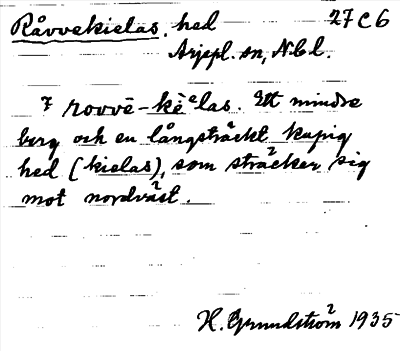 Råvvekielas, hed 27 C 6
Arjepl. sn, Nbl.
rovvē-kè͔ᵉlas. Ett mindre
berg och en långsträckt kupig
hed (kielas), som sträcker sig
mot nordväst.
H. Grundström 1935